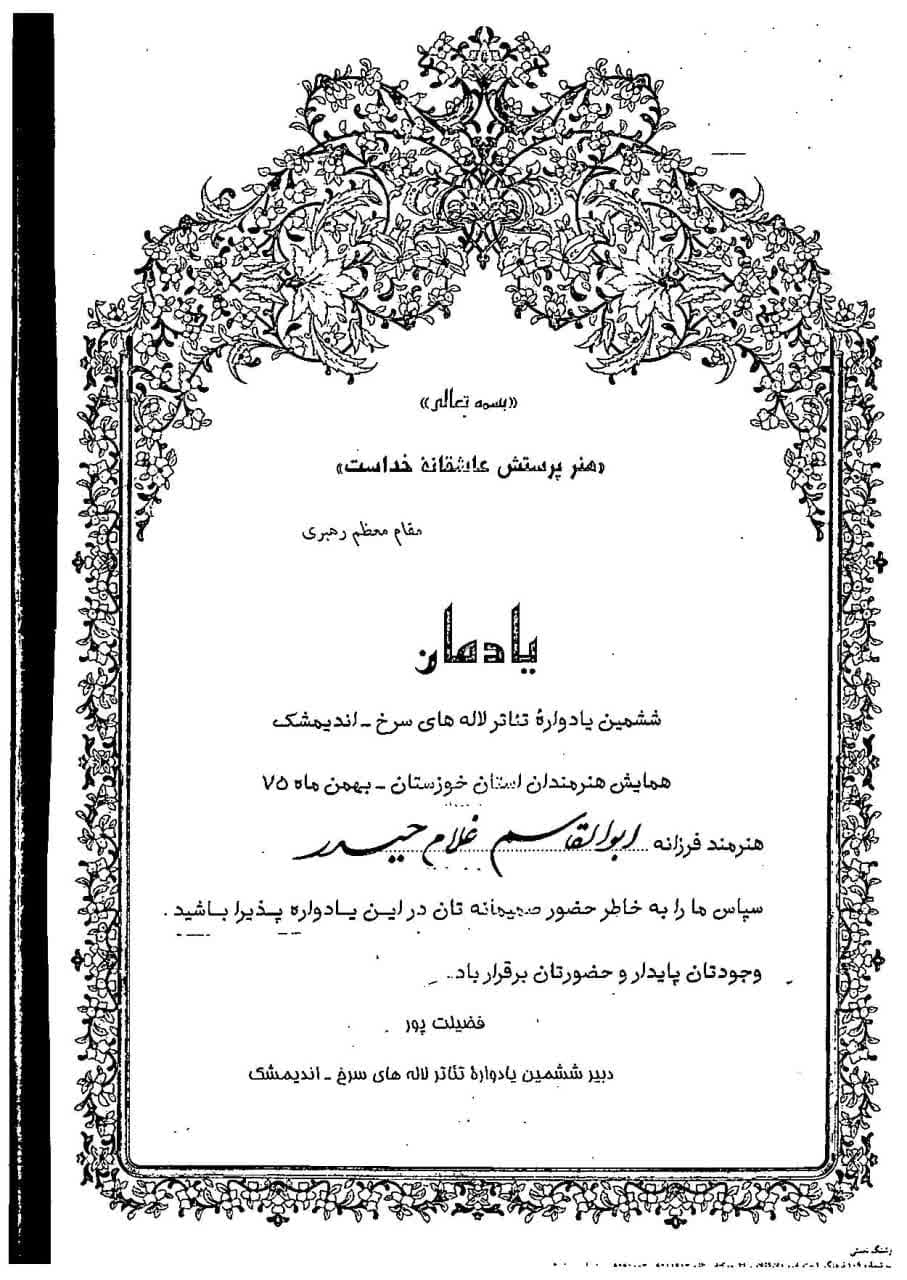 «بسمه تعالی»
«هنر پرستش عاشقانهٔ خداست»
مقام معظم رهبری
یادمان
ششمین یادوارهٔ تئاتر لاله های سرخ ـ اندیمشک
همایش هنرمندان استان خوزستان ـ بهمن ماه ۷۵
هنرمند فرزانه ابوالقاسم غلام حیدر
سپاس ما را به خاطر حضور صمیمانه تان در این یادواره پذیرا باشید .
وجودتان پایدار و حضورتان برقرار باد..
فضیلت پور
دبیر ششمین یادوارهٔ تئاتر لاله های سرخ ـ اندیمشک